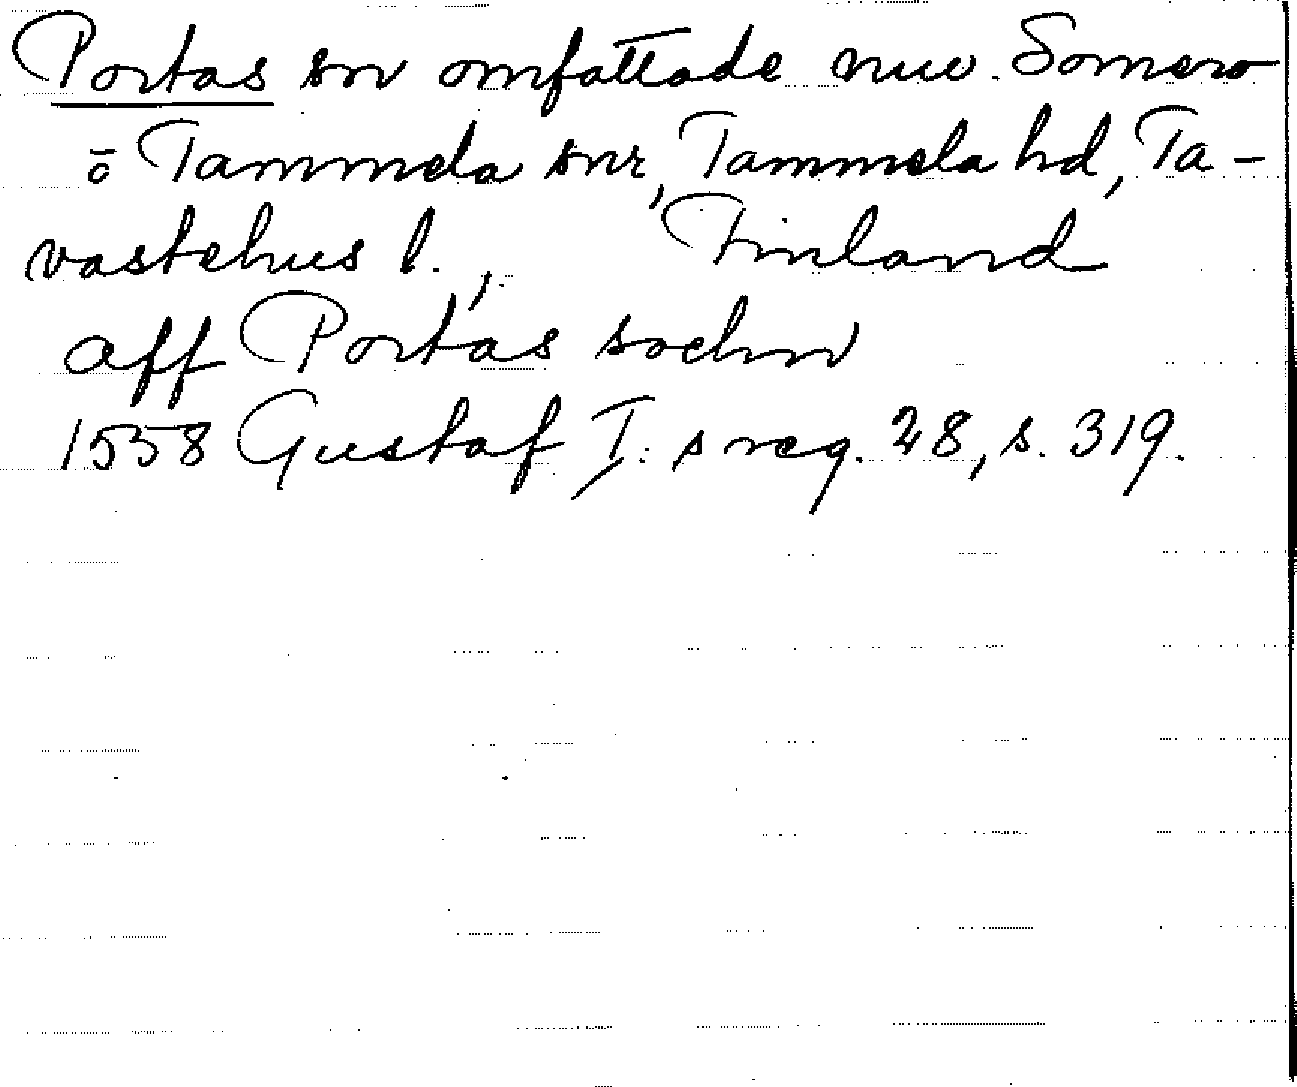 Portas sn omfattade nuv. Somero
o Tammela snr, Tammela hd, Ta-
vastehus l., Finland
aff Portas sochn
1558 Gustaf I:s reg. 28, s. 319.